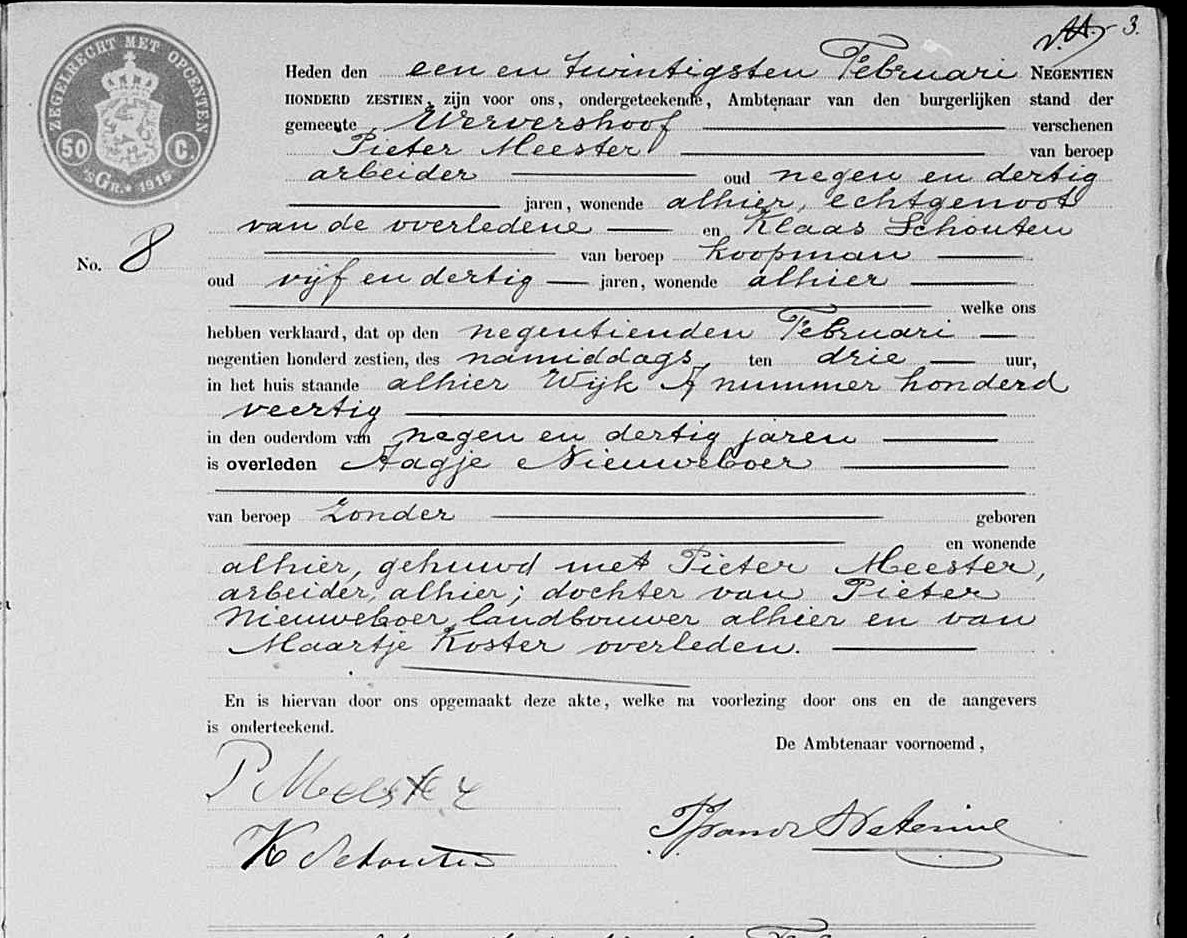 3.
ZEGELRECHT MET OPCENTEN
50 C.
'sGR. 1915
Heden den een en twintigsten Februari NEGENTIEN
HONDERD ZESTIEN, zijn voor ons, ondergeteekende, Ambtenaar van den burgerlijken stand der
gemeente Wervershoof verschenen
Pieter Meester van beroep
arbeider oud negen en dertig
jaren, wonende alhier, echtgenoot
van de overledene en Klaas Schouten
No. 8 van beroep koopman
oud vijf en dertig jaren, wonende alhier
welke ons
hebben verklaard, dat op den negentienden Februari
negentien honderd zestien, des namiddags ten drie uur,
in het huis staande alhier Wijk A nummer honderd
veertig
in den ouderdom van negen en dertig jaren
is overleden Aagje Nieuweboer
van beroep zonder geboren
en wonende
alhier, gehuwd met Pieter Meester,
arbeider, alhier; dochter van Pieter
Nieuweboer, landbouwer alhier en van
Maartje Koster overleden.
En is hiervan door ons opgemaakt deze akte, welke na voorlezing door ons en de aangevers
is onderteekend.
De Ambtenaar voornoemd,
P Meester
K Schouten